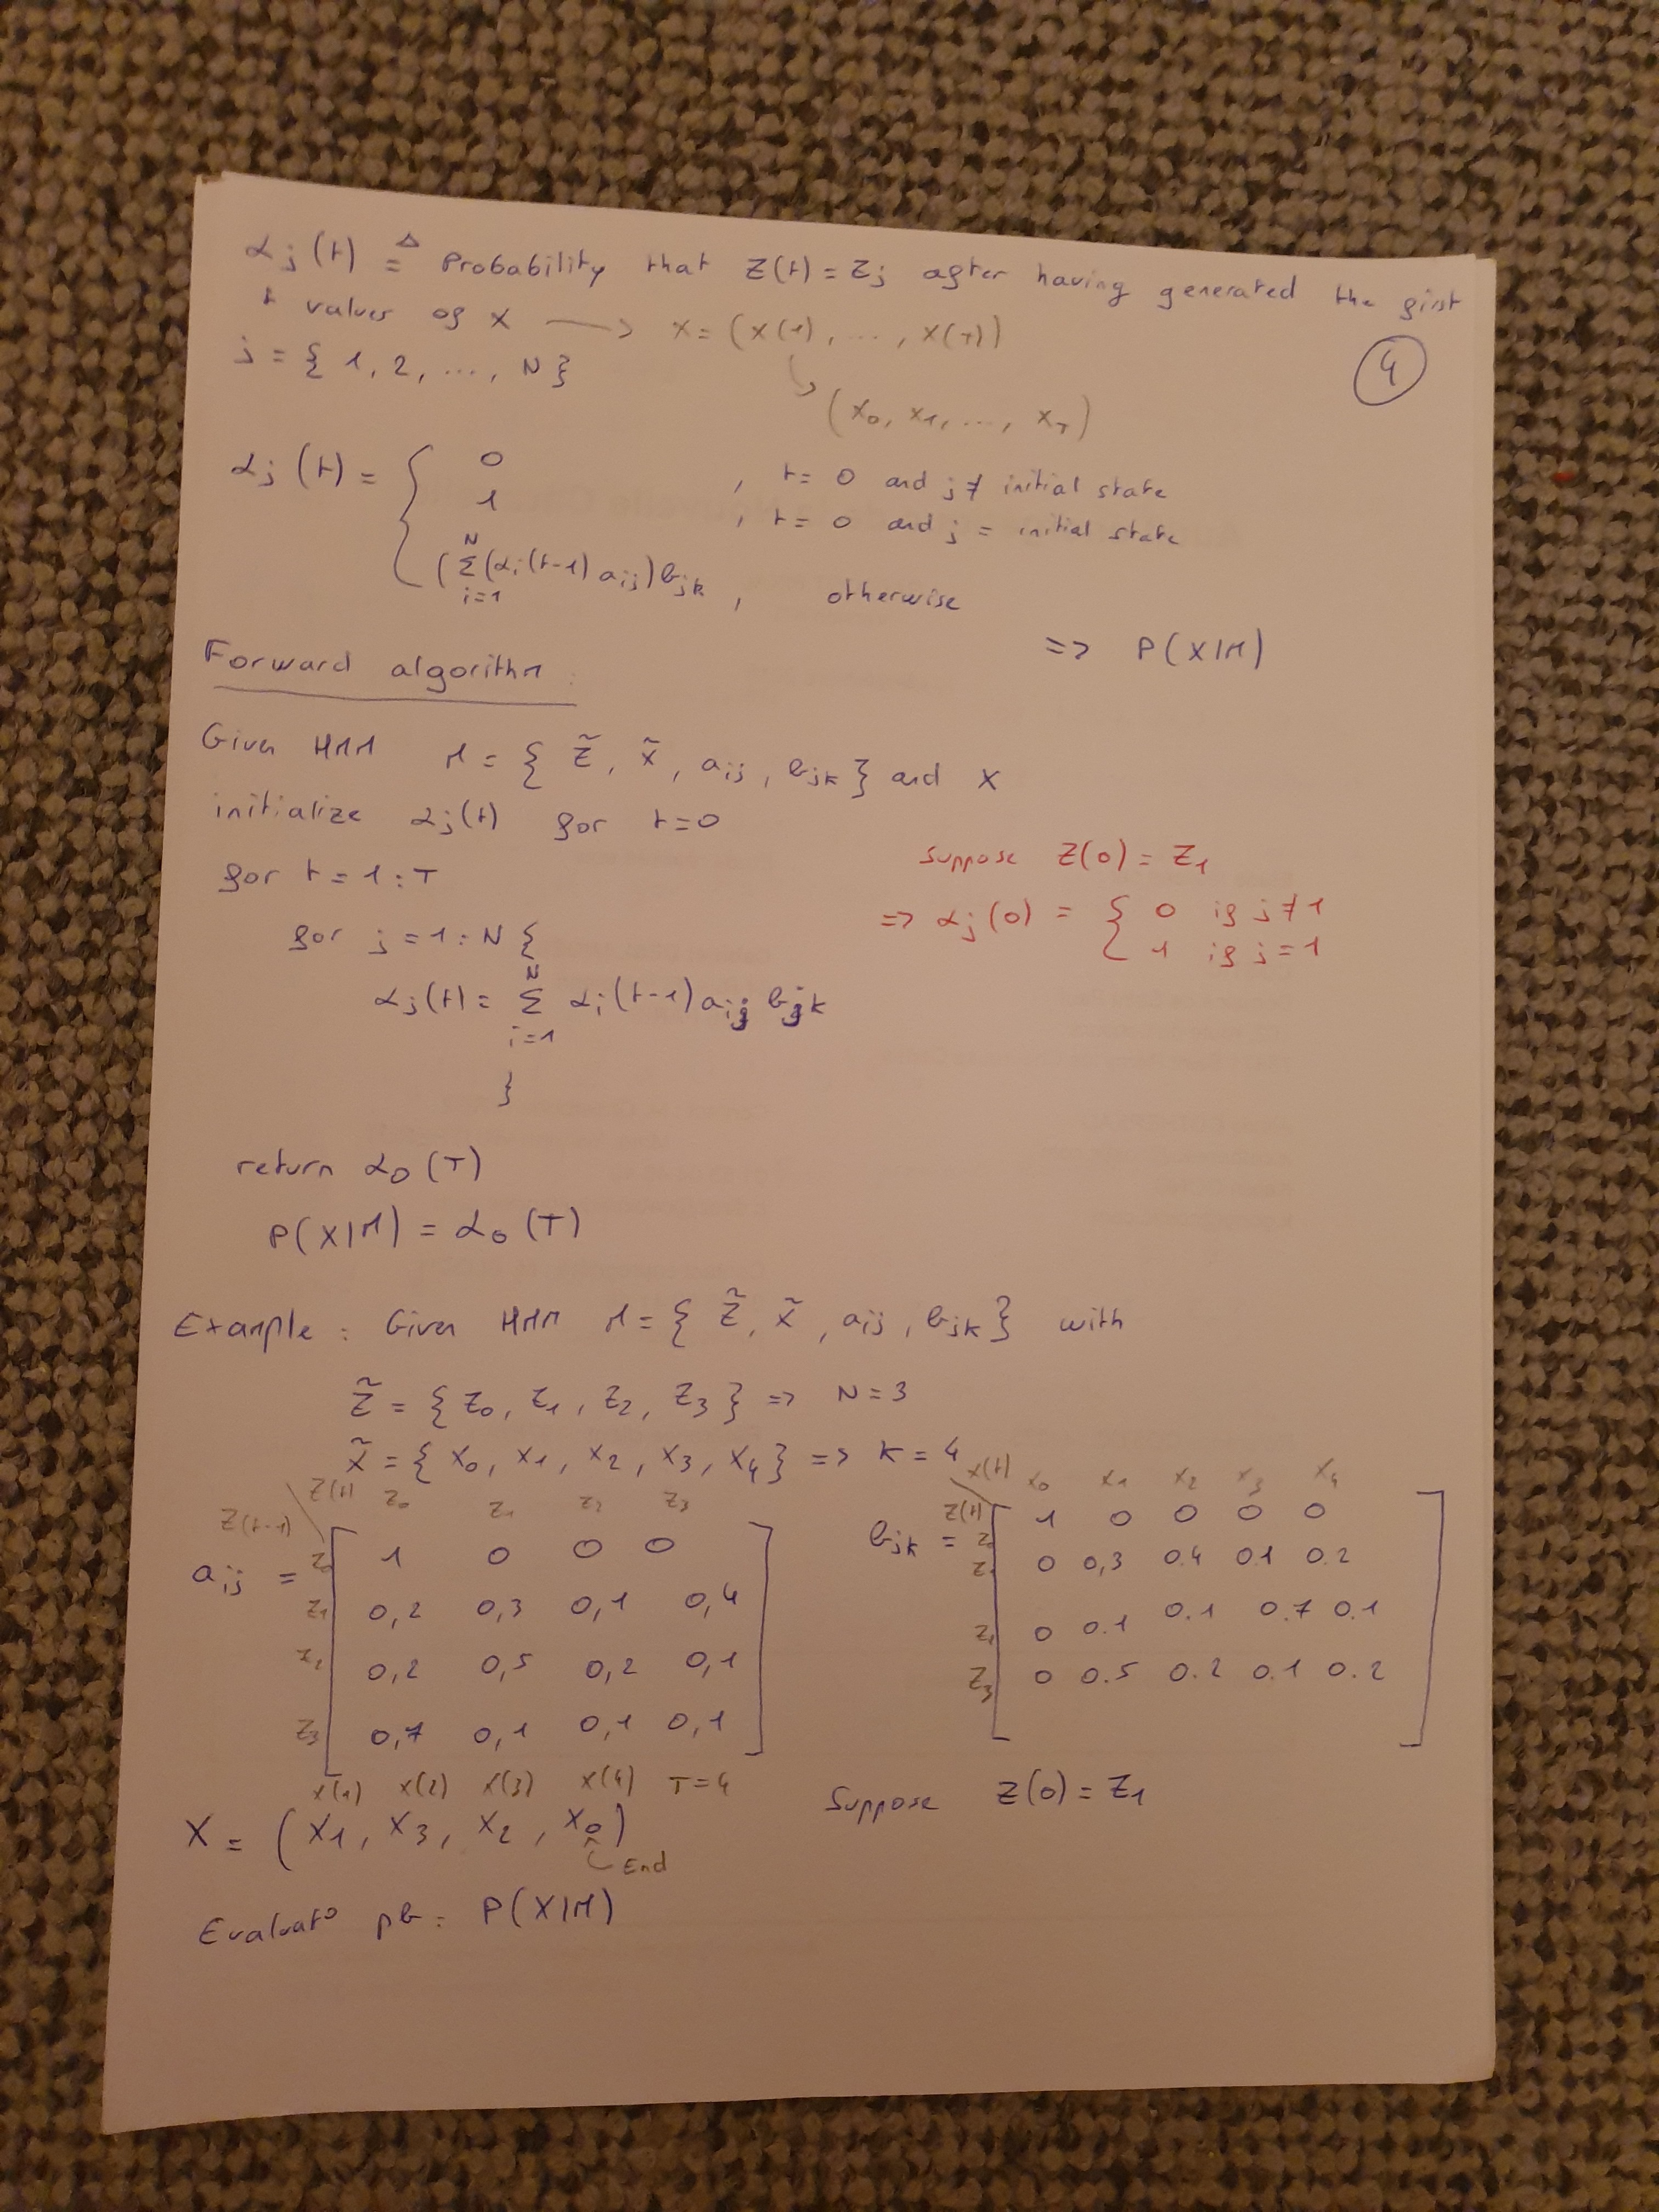 αj(t) ≜ Probability that Z(t) = Zj after having generated the first
t values of X → X = (X(1), ..., X(T))
j = { 1, 2, ..., N }
(x0, x1, ..., xT)
4
αj(t) = {
0 , t = 0 and j ≠ initial state
1 , t = 0 and j = initial state
(∑_{i=1}^{N} (αi(t-1) aij) bjk , otherwise
=> P(X|M)
Forward algorithm :
Given HMM M = { Z̃, X̃, aij, bjk } and X
initialize αj(t) for t=0
for t = 1 : T
Suppose Z(0) = Z1
=> αj(0) = { 0 if j ≠ 1
1 if j = 1
for j = 1 : N {
αj(t) = ∑_{i=1}^{N} αi(t-1) aij bjk
}
return α0(T)
P(X|M) = α0(T)
Example : Given HMM M = { Z̃, X̃, aij, bjk } with
Z̃ = { Z0, Z1, Z2, Z3 } => N = 3
X̃ = { x0, x1, x2, x3, x4 } => K = 4
Z(t-1) \ Z(t) Z0 Z1 Z2 Z3
aij =
Z0 1 0 0 0
Z1 0,2 0,3 0,1 0,4
Z2 0,2 0,5 0,2 0,1
Z3 0,7 0,1 0,1 0,1
Z(t) \ X(t) x0 x1 x2 x3 x4
bjk =
Z0 1 0 0 0 0
Z1 0 0,3 0.4 0.1 0.2
Z2 0 0.1 0.1 0.7 0.1
Z3 0 0.5 0.2 0.1 0.2
X(1) X(2) X(3) X(4) T=4
X = (x1, x3, x2, x0)
End
Suppose Z(0) = Z1
Evaluato pb : P(X|M)